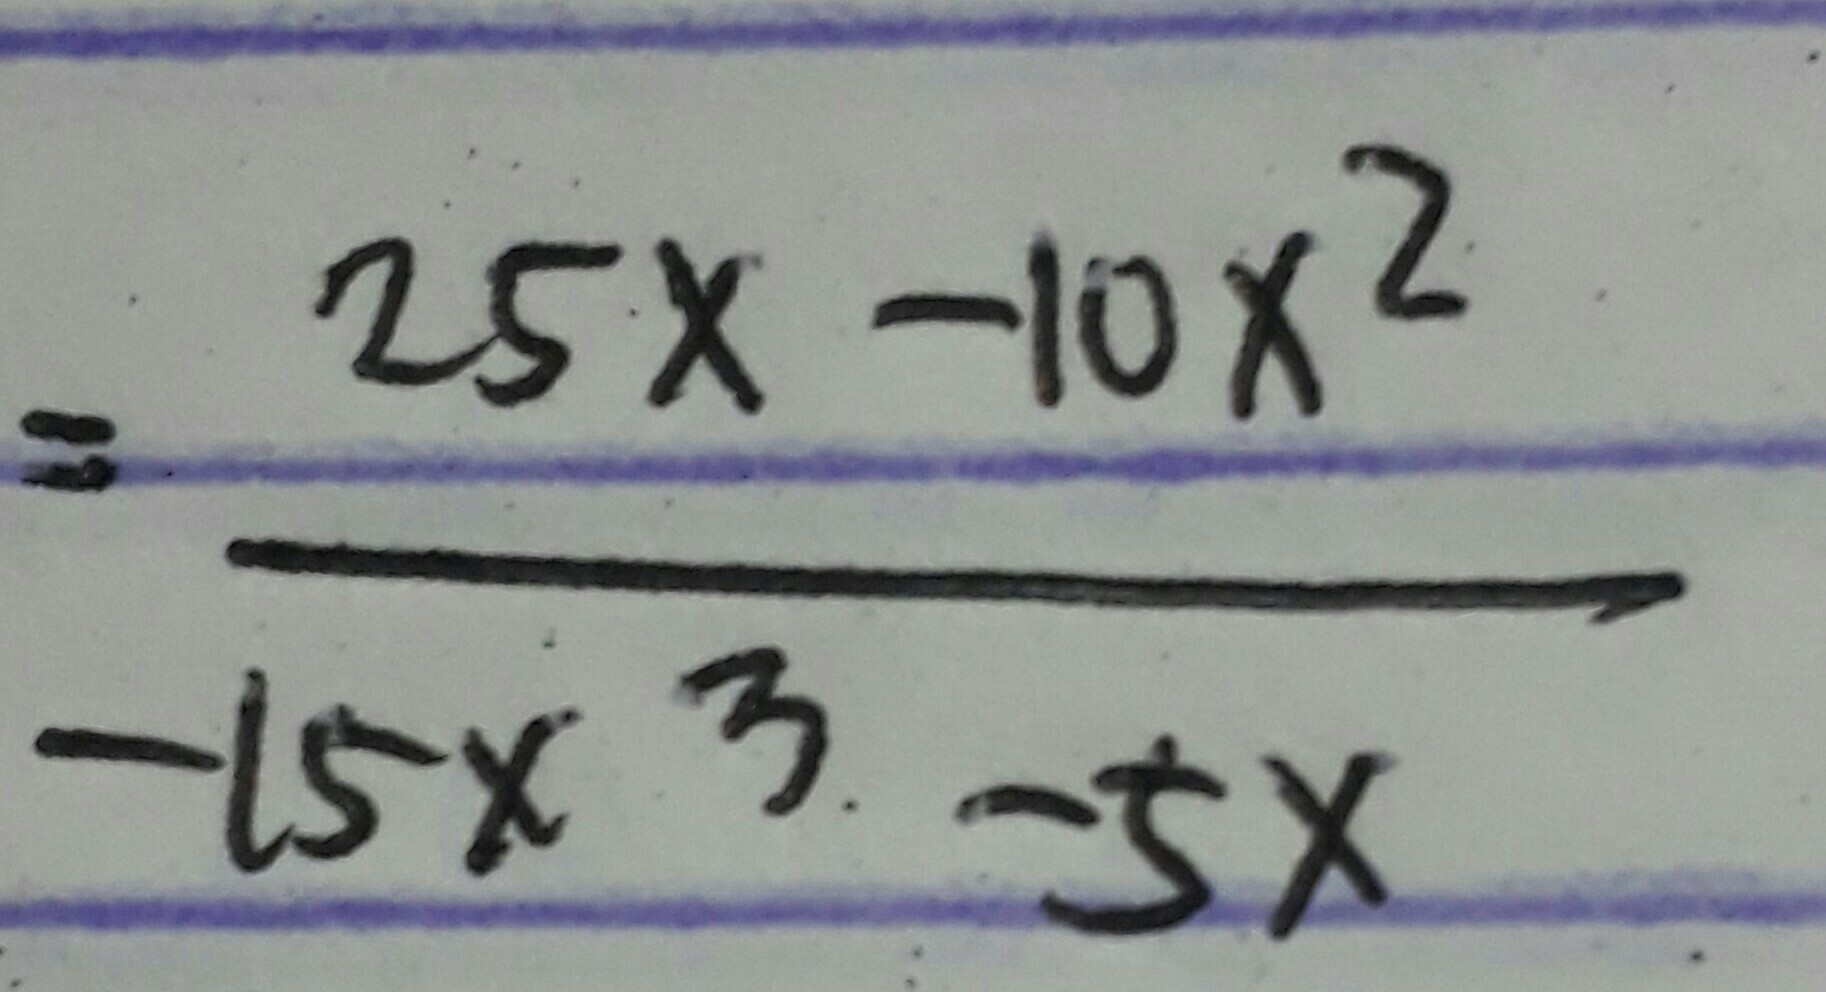 = 25x -10x²
-15x³ -5x